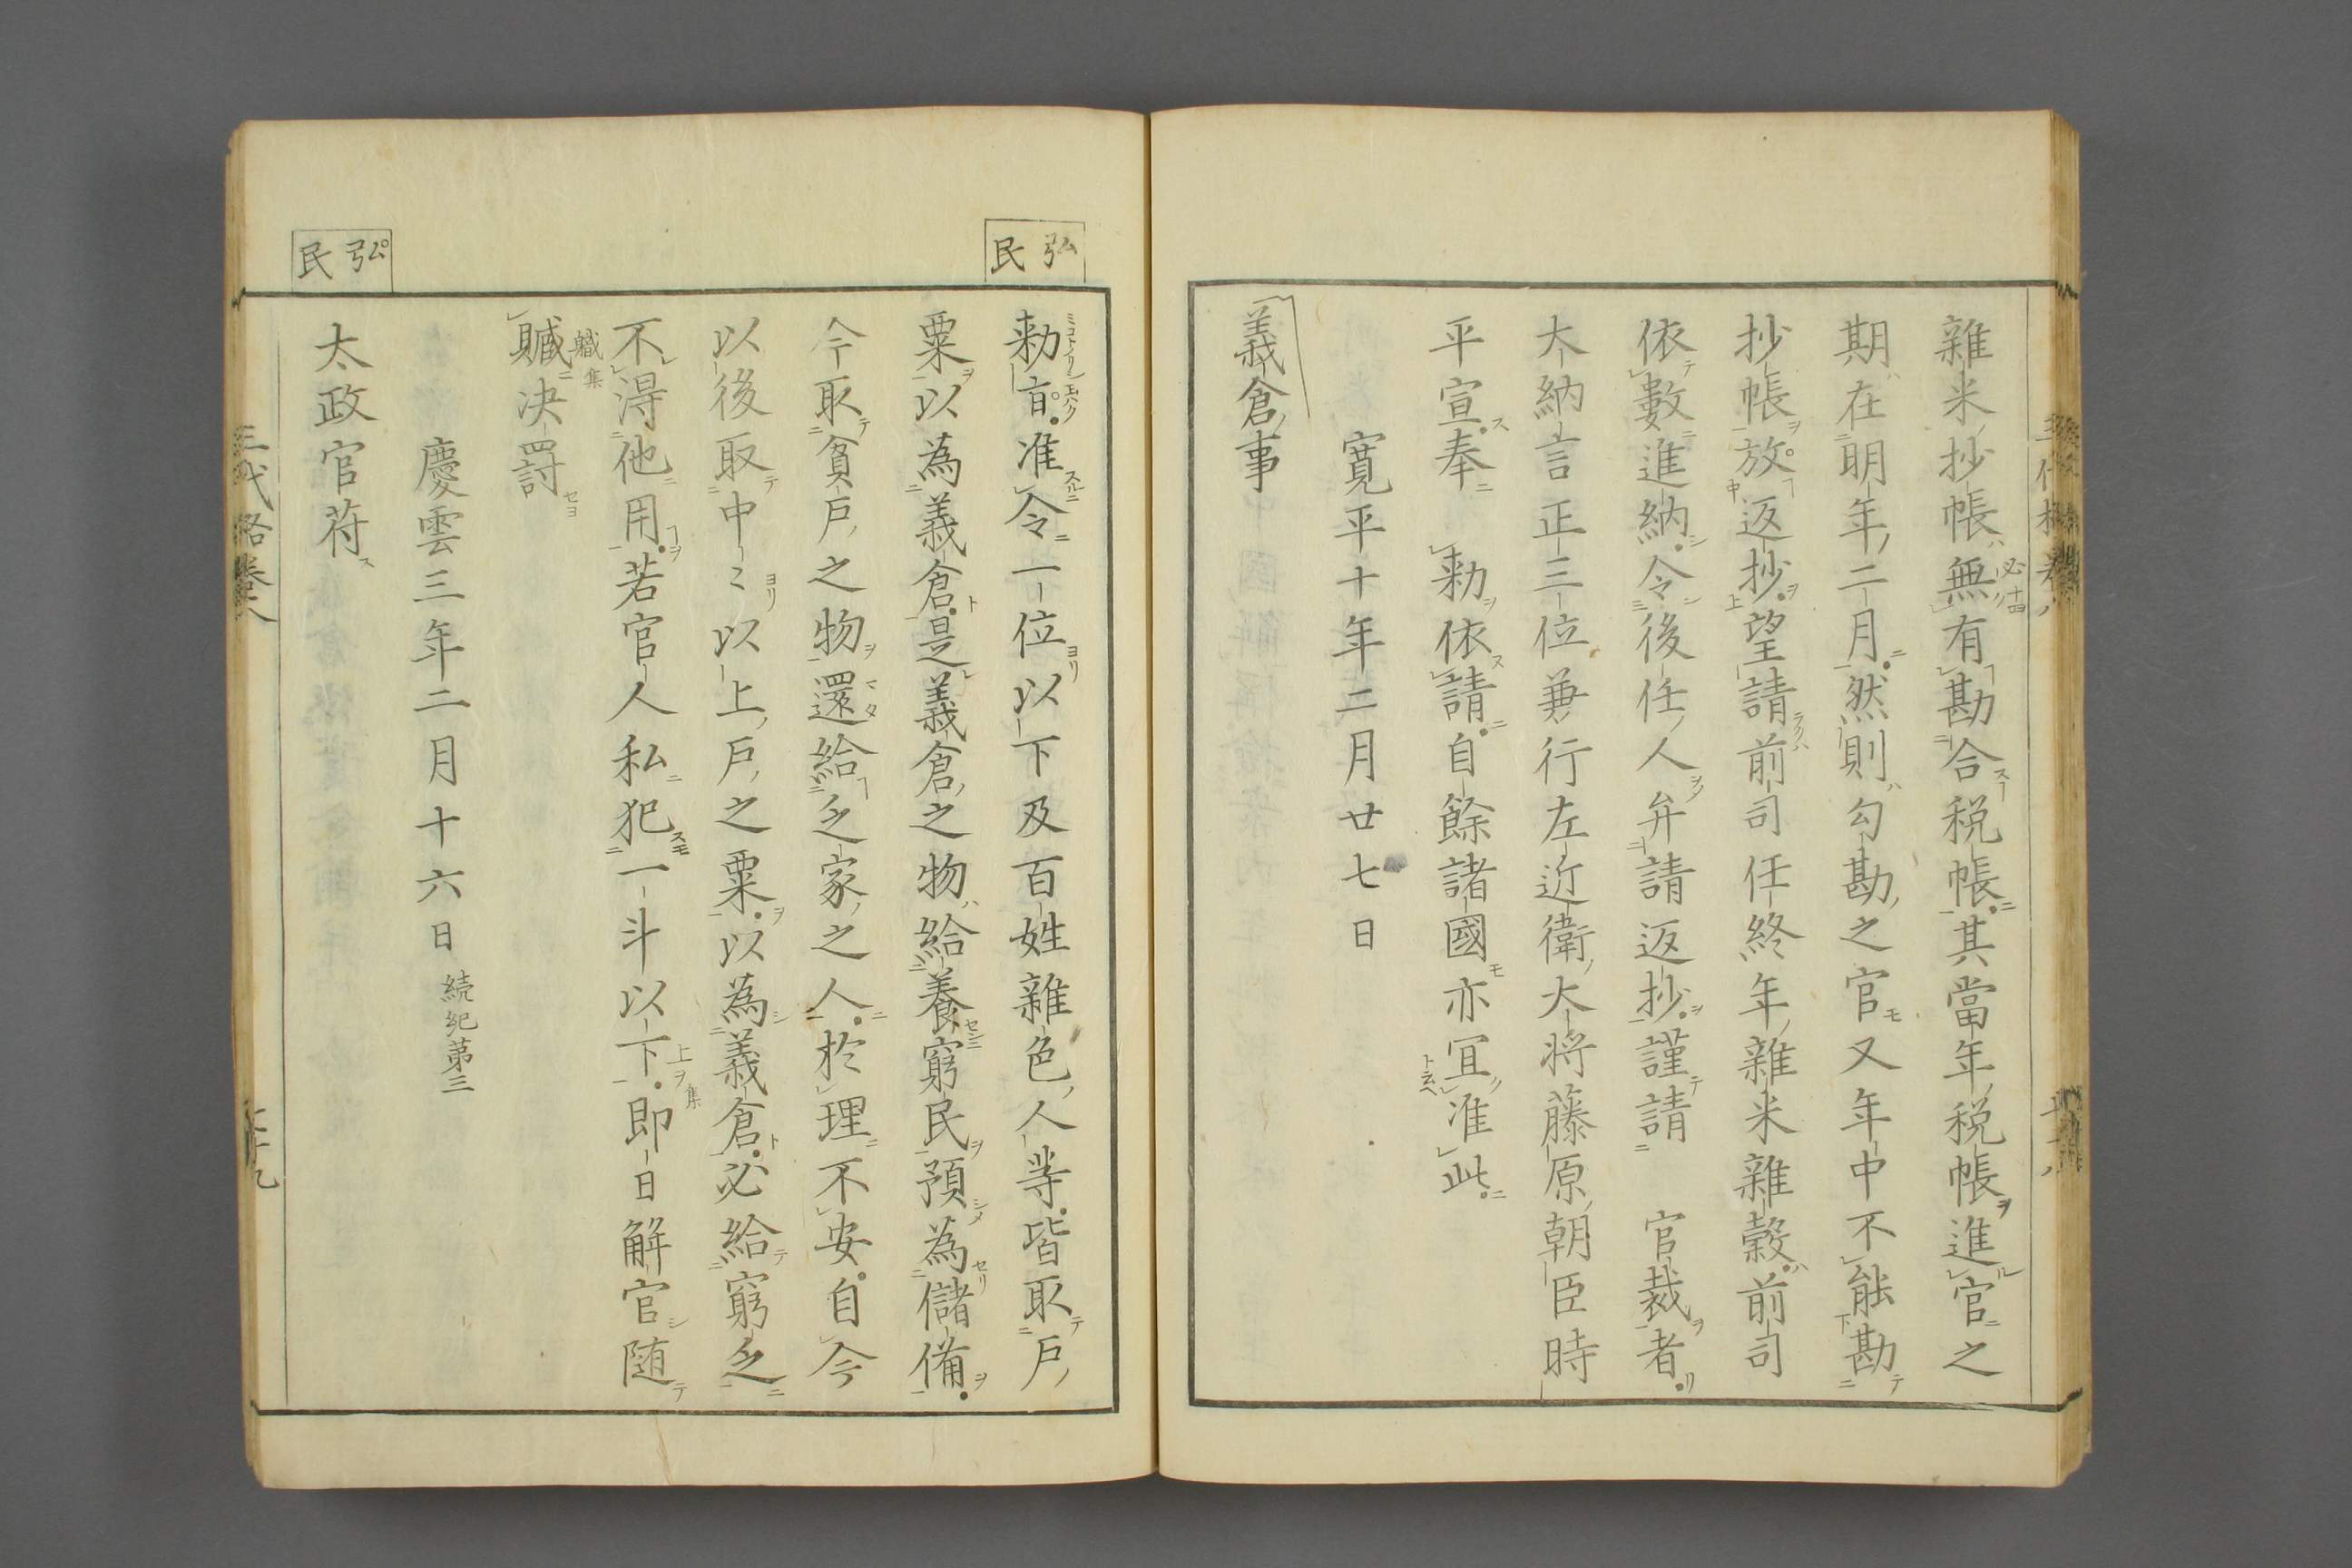 雜米抄帳無有勘合税帳其當年税帳進官之
期在明年二月然則勾勘之官又年中不能勘
抄帳放返抄望請前司任終年雜米雜穀前司
依數進納令後任人弁請返抄謹請 官裁者
大納言正三位兼行左近衛大將藤原朝臣時
平宣奉 勅依請自餘諸國亦宜准此
寛平十年二月廿七日
義倉事
弘民
勅旨准令一位以下及百姓雜色人等皆取戸
粟以為義倉是義倉之物給養窮民預為儲備
今取貧戸之物還給乏家之人於理不安自今
以後取中〻以上戸之粟以為義倉必給窮乏
不得他用若官人私犯一斗以下即日解官随
贓决罰
慶雲三年二月十六日 続紀第三
弘民
太政官苻
三代格巻八